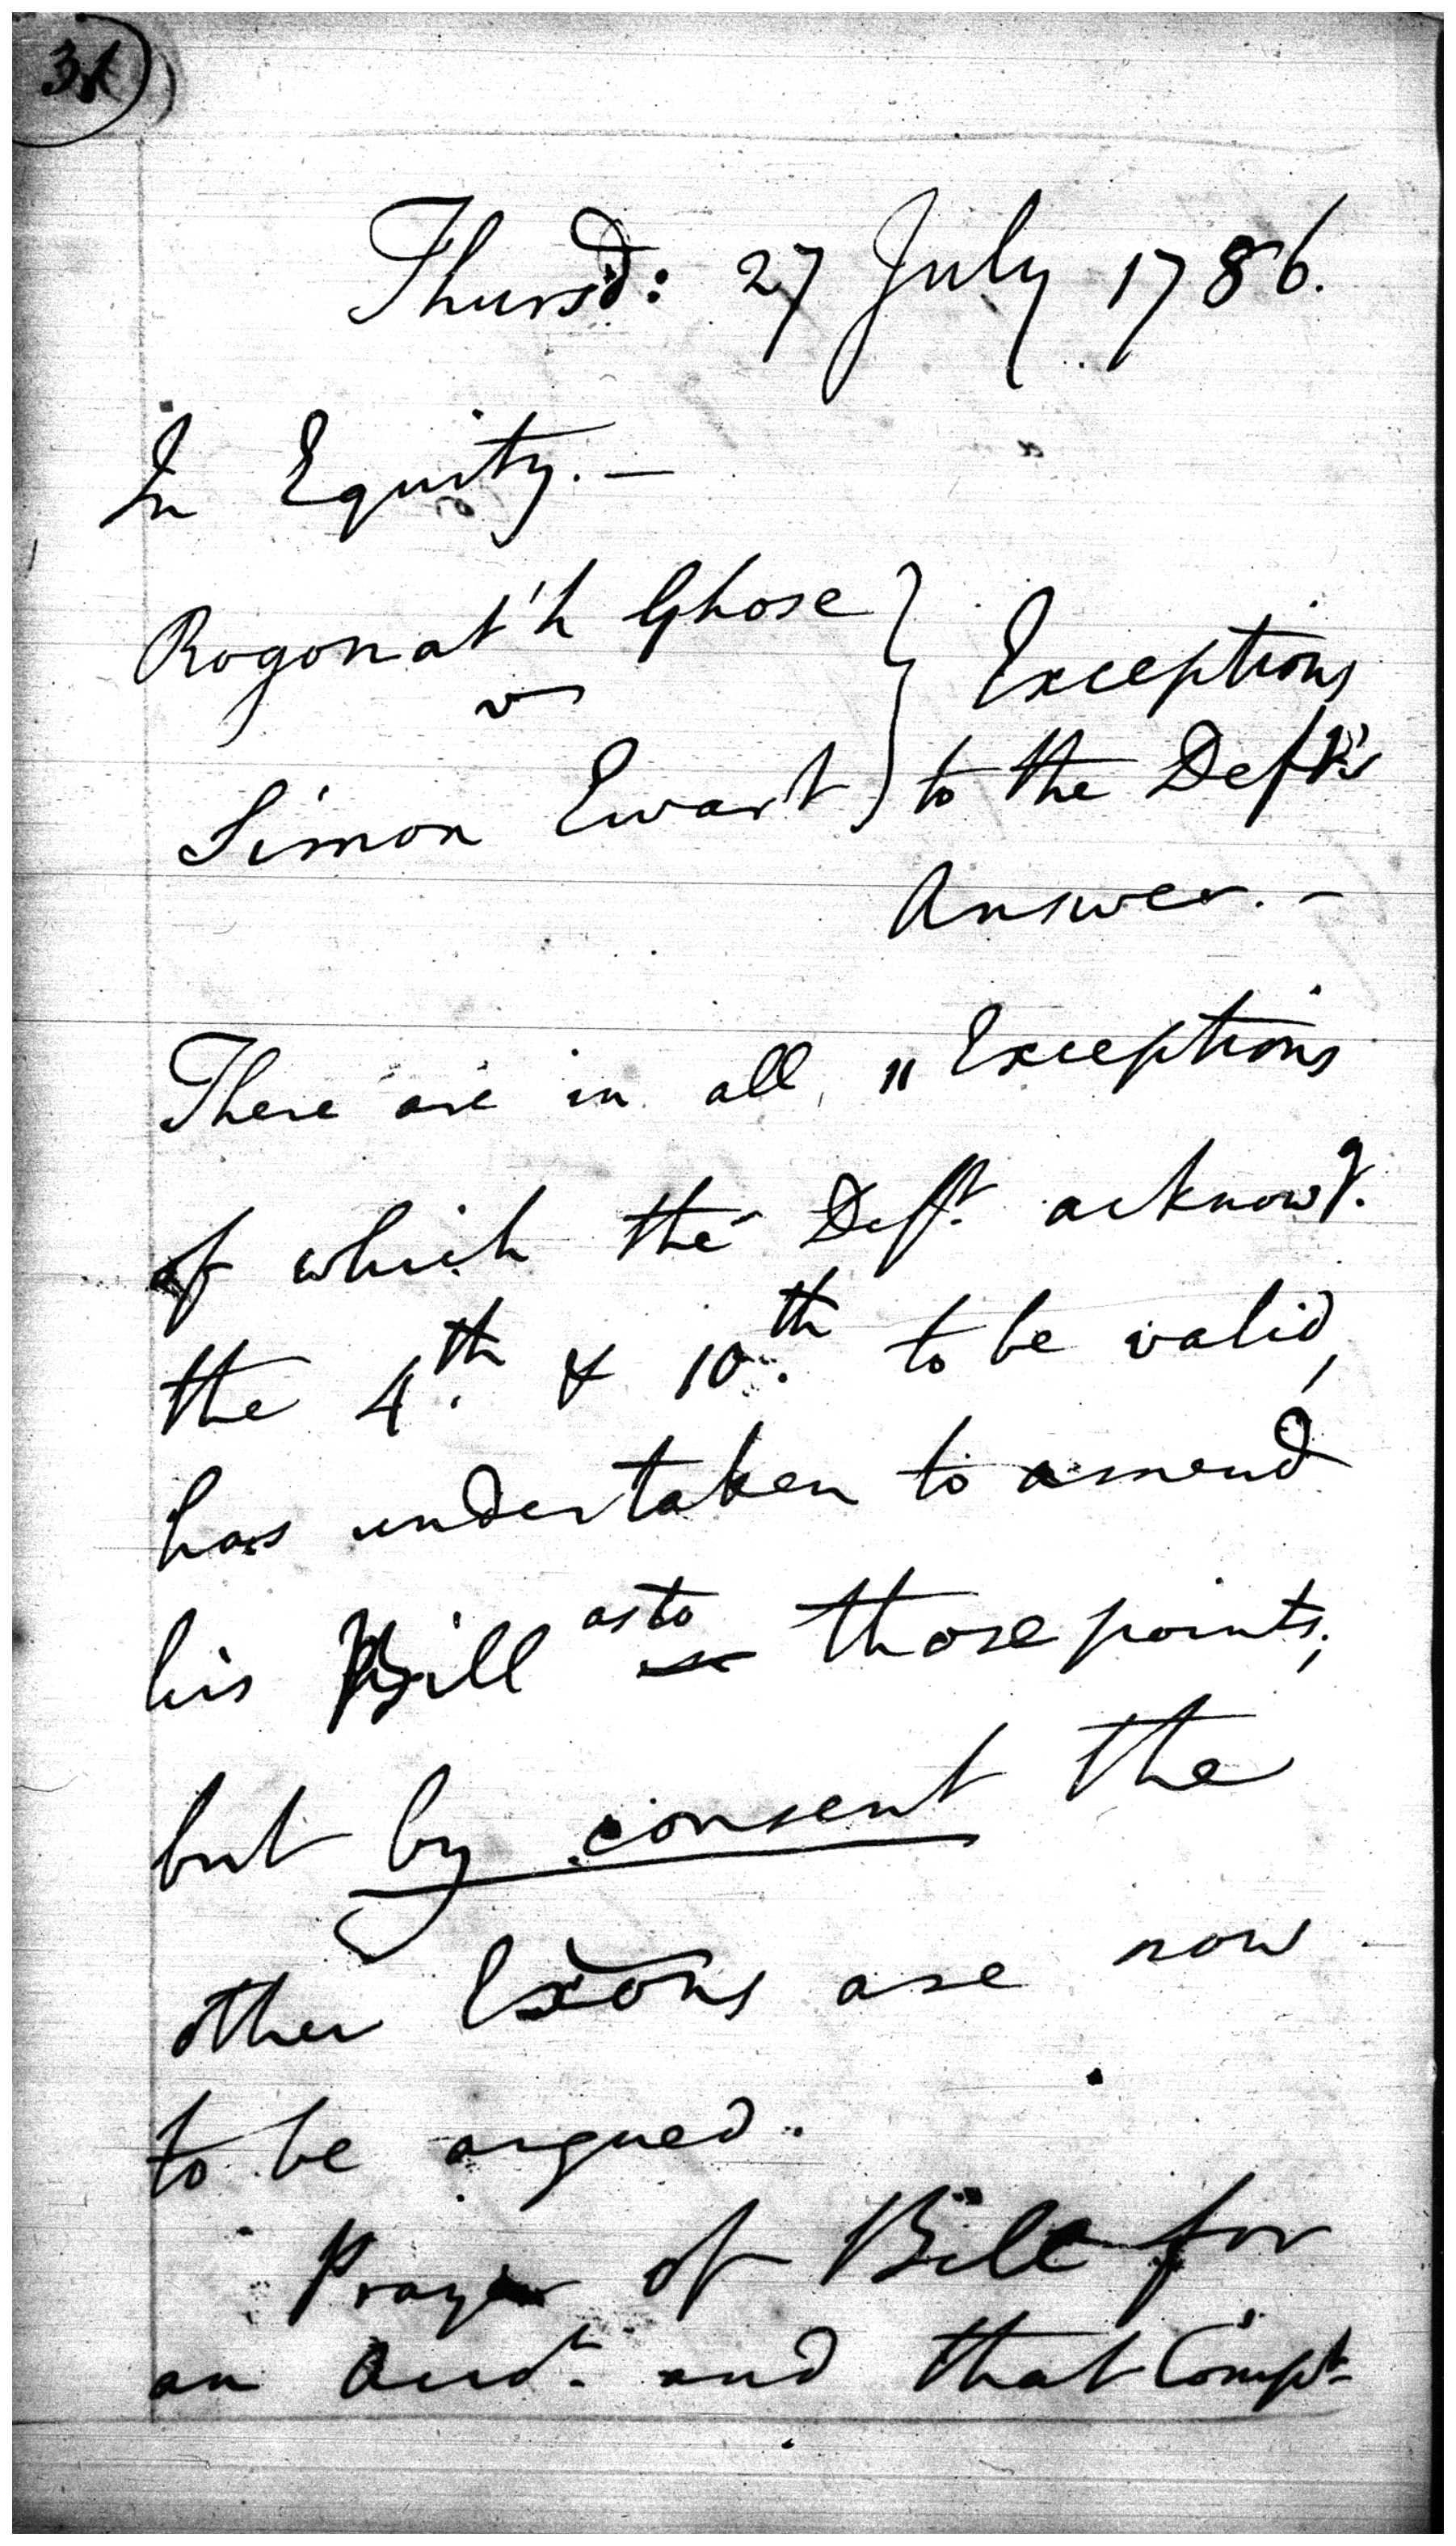 Thursd: 27 July 1786.
In Equity. —
Rogonat'h Ghose
vs
Simon Ewart
} Exceptions
to the Deft's
Answer. —
There are in all, 11 Exceptions
of which the Deft. acknowg.
the 4th. & 10th. to be valid,
has undertaken to amend
his Bill as to those points;
but by consent the
other Exõns are now
to be argued.
Prayer of Bill for
an and that Compt